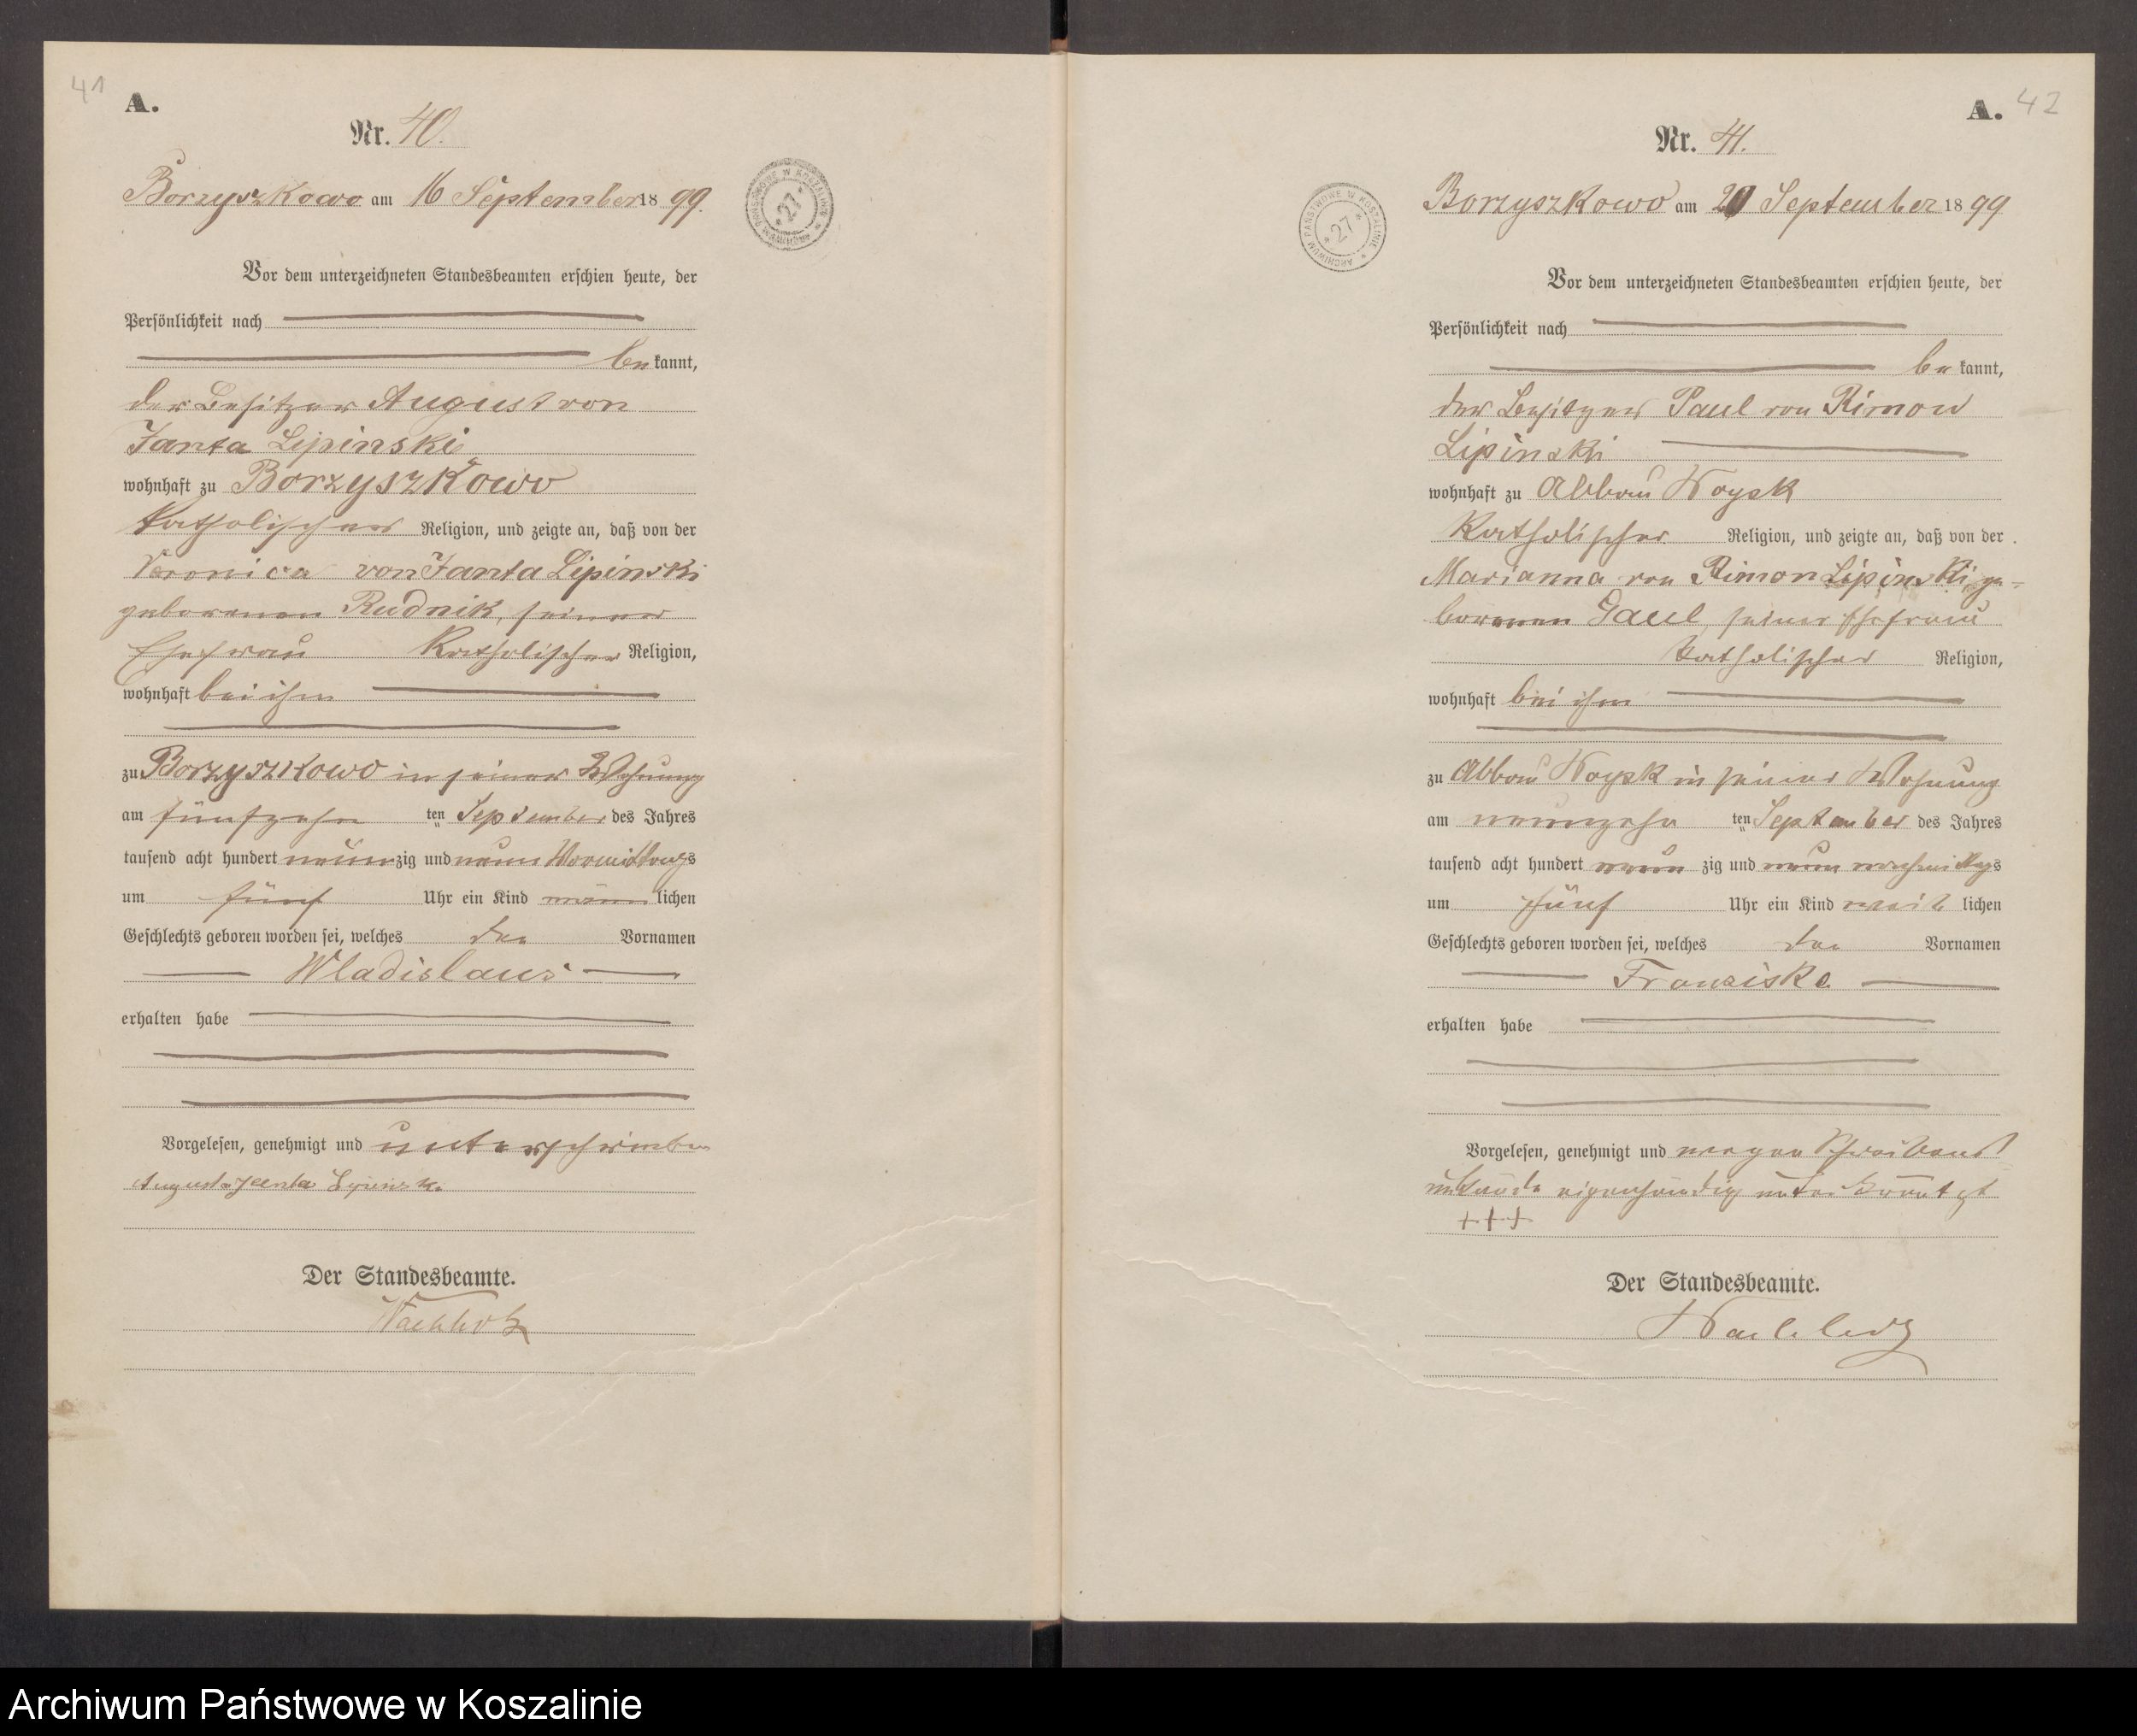 41
A.
Nr. 40.
Borzyszkowo am 16 September 18 99.
ARCHIWUM PAŃSTWOWE W KOSZALINIE
* 27 *
Vor dem unterzeichneten Standesbeamten erschien heute, der
Persönlichkeit nach
be kannt,
der Besitzer August von
Janta Lipinski
wohnhaft zu Borzyszkowo
katholischer Religion, und zeigte an, daß von der
Veronica von Janta Lipinski
geborenen Rudnik, seiner
Ehefrau Katholischer Religion,
wohnhaft bei ihm
zu Borzyszkowo in seiner Wohnung
am fünfzehn ten September des Jahres
tausend acht hundert neun zig und neun Vormittags
um fünf Uhr ein Kind männ lichen
Geschlechts geboren worden sei, welches den Vornamen
Wladislaus
erhalten habe
Vorgelesen, genehmigt und unterschrieben
August Janta Lipinski
Der Standesbeamte.
42
A.
Nr. 41.
Borzyszkowo am September 18 99
ARCHIWUM PAŃSTWOWE W KOSZALINIE
* 27 *
Vor dem unterzeichneten Standesbeamten erschien heute, der
Persönlichkeit nach
be kannt,
der Besitzer Paul von Rimon
Lipinski
wohnhaft zu Abbau Woysk
Katholischer Religion, und zeigte an, daß von der
Marianna von Rimon Lipinski ge-
borenen Gaul, seiner Ehefrau
katholischer Religion,
wohnhaft bei ihm
zu Abbau Woysk in seiner Wohnung
am neunzehn ten September des Jahres
tausend acht hundert neun zig und neun nachmittags
um fünf Uhr ein Kind weib lichen
Geschlechts geboren worden sei, welches den Vornamen
Franziska
erhalten habe
Vorgelesen, genehmigt und wegen Schreibens
unkunde eigenhändig unterkreuzt
+++
Der Standesbeamte.
Archiwum Państwowe w Koszalinie